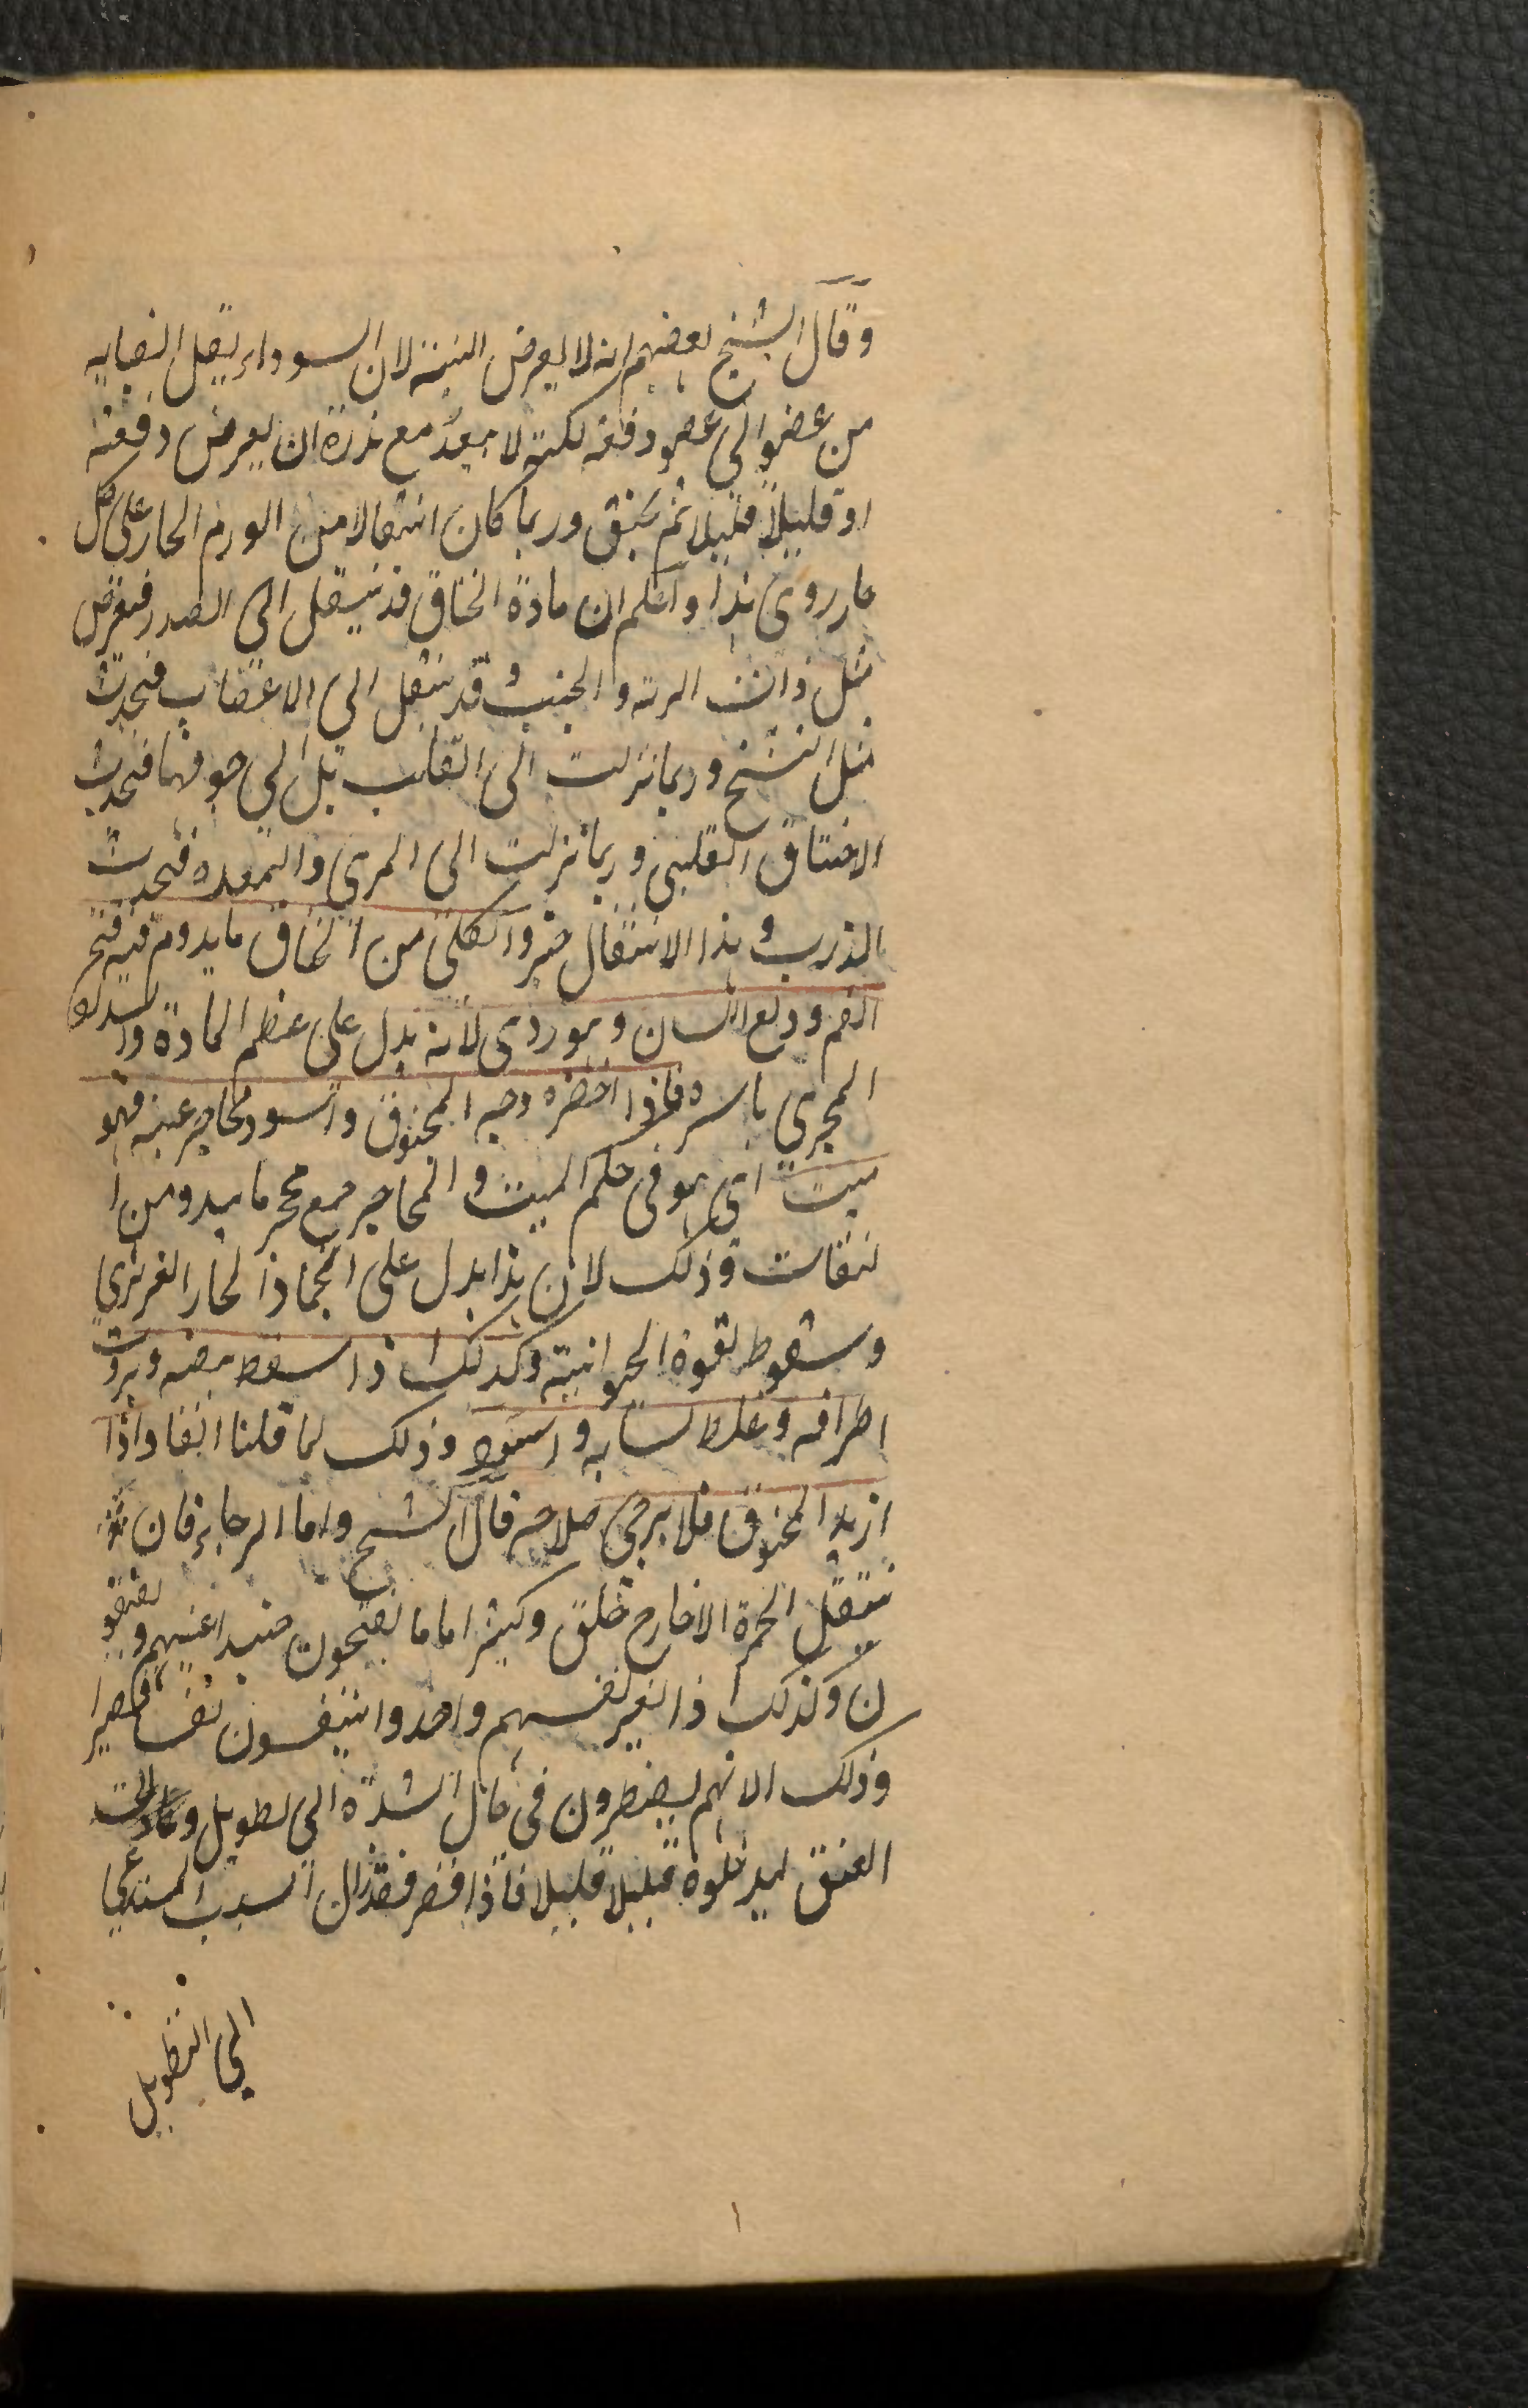 وقال الشيخ بعضهم انه لا يعرض البتة لان السوداء يقل انصبابه
من عضو الى عضو دفعة لكنه لا يبعد مع ندرة ان يعرض دفعة
او قليلا قليلا ثم يخنق وربما كان انتقالا من الورم الحار على كل
حار روى هذا واعلم ان مادة الخناق قد ينتقل الى الصدر فيعرض
مثل ذات الرية والجنب وقد ينتقل الى الاعصاب فيحدث
مثل التشنج وربما نزلت الى القلب بل الى جوفها فيحدث
الاختناق القلبي وربما نزلت الى المرى والمعده فيحدث
الذرب وهذا الانتقال خير والكلي من الخناق ما يدوم فيه فتح
الفم ودلع اللسان وهو ردى لانه يدل على عظم المادة وانسداد
المجرى باسره فاذا اخضره وجه المخنوق واسود محاجر عينه فهو
ميت اى هو فى حكم الميت والمحاجر جمع محجر ما يبدو من ا
لنقاب وذلك لان هذا يدل على انجماد الحار الغريزي
وسقوط القوة الحيوانية وكذلك اذا سقط نبضه وبردت
اطرافه وغلظ لسانه واسود وذلك لما قلنا انفا واذا
ازبد المخنوق فلا يرجى صلاحه قال الشيخ واما الرجاء فان
تنتقل الحمرة الا خارج خلق وكثيرا ما ما يفتحون حنيد اعينهم ويفيقو
ن وكذلك اذا تغير نفسهم واخذوا يتنفسون نفسا قصيرا
وذلك الانهم يضطرون فى حال الشدة الى تطويل
العنق ليدخلوه قليلا قليلا فاذا قصر فقد زال السبب المستدعي
الى التطويل